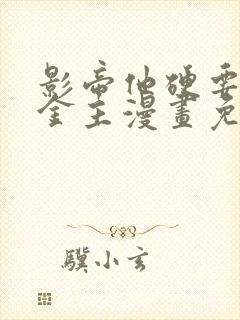 影帝他硬要
金主漫畫免
驥小玄